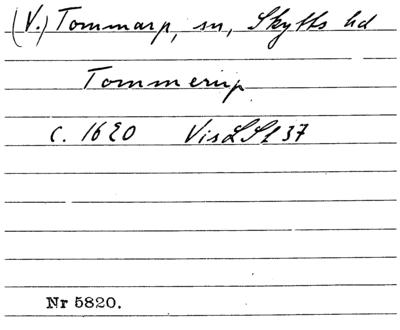 (V.) Tommarp, sn, Skytts hd
Tommerup
c. 1620 VisLSt 37
Nr 5820.